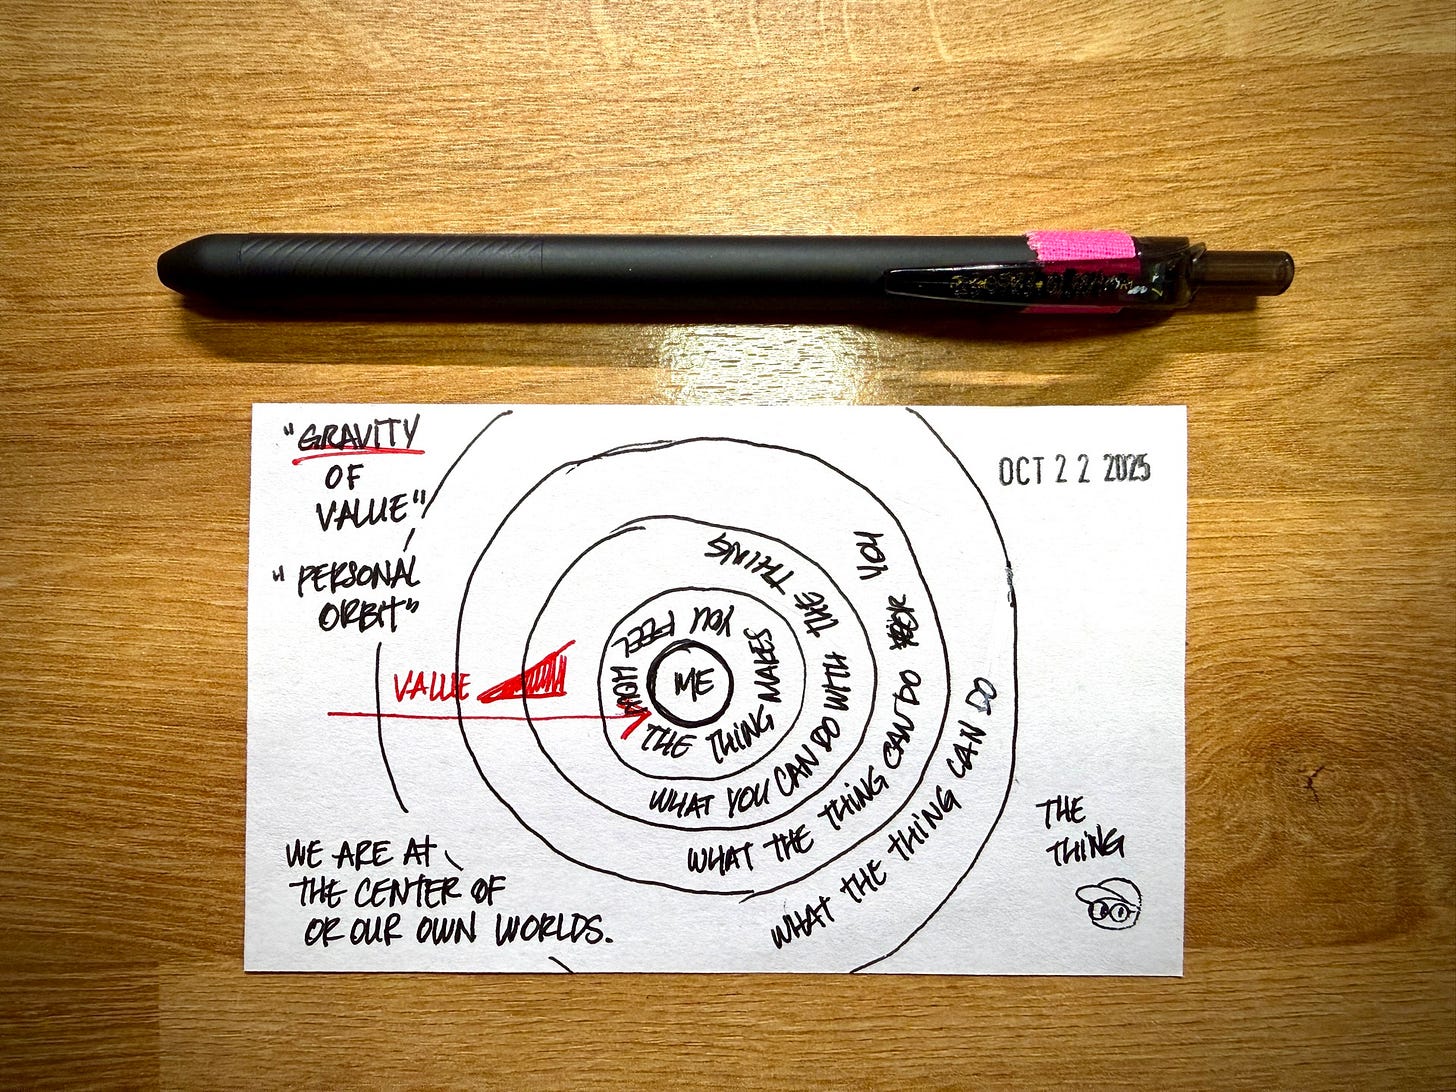 "GRAVITY
OF
VALUE"
"PERSONAL
ORBIT"
OCT 22 2025
VALUE
ME
HOW YOU FEEL
THE THING MAKES
WHAT YOU CAN DO WITH THE THING
WHAT THE THING CAN DO FOR YOU
WHAT THE THING CAN DO
THE
THING
WE ARE AT
THE CENTER OF
OR OUR OWN WORLDS.